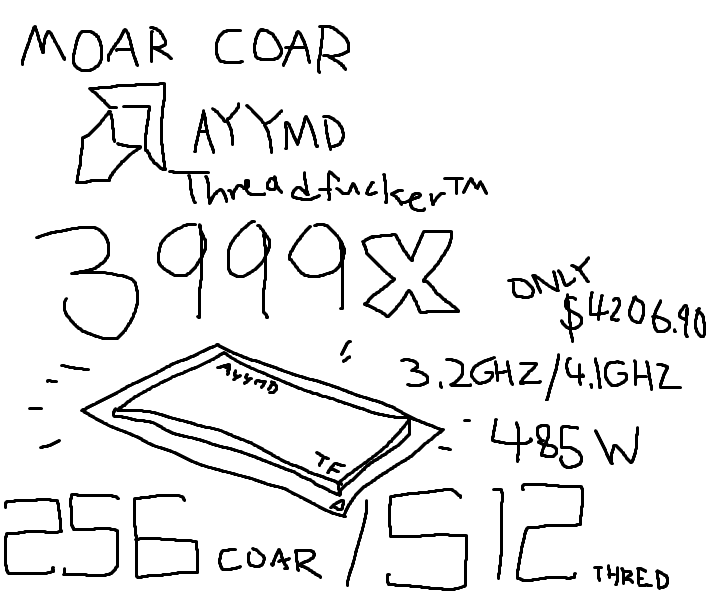 MOAR COAR
AYYMD
Threadfucker™
3999X
ONLY
$4206.90
3.2GHZ/4.1GHZ
485W
AYYMD
TF
256 COAR / 512 THRED